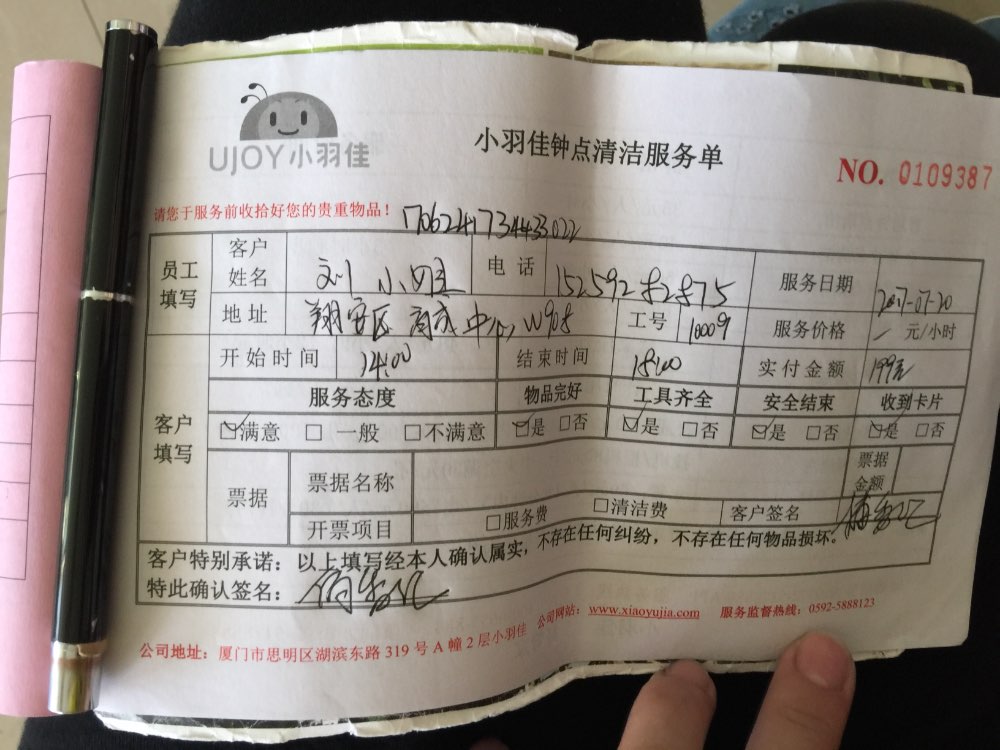 UJOY小羽佳
小羽佳钟点清洁服务单
NO. 0109387
请您于服务前收拾好您的贵重物品！
员工填写 客户姓名 刘小姐 电话 服务日期 2017-07-20
地址 翔安区商成中心W908 工号 10009 服务价格 元/小时
客户填写 开始时间 14:00 结束时间 18:00 实付金额 199元
服务态度 物品完好 工具齐全 安全结束 收到卡片
☑满意 □一般 □不满意 ☑是 □否 ☑是 □否 ☑是 □否 ☑是 □否
票据 票据名称 票据金额
开票项目 □服务费 □清洁费 客户签名
客户特别承诺：以上填写经本人确认属实，不存在任何纠纷，不存在任何物品损坏。
特此确认签名：
公司地址：厦门市思明区湖滨东路319号A幢2层小羽佳 公司网站：www.xiaoyujia.com 服务监督热线：0592-5888123